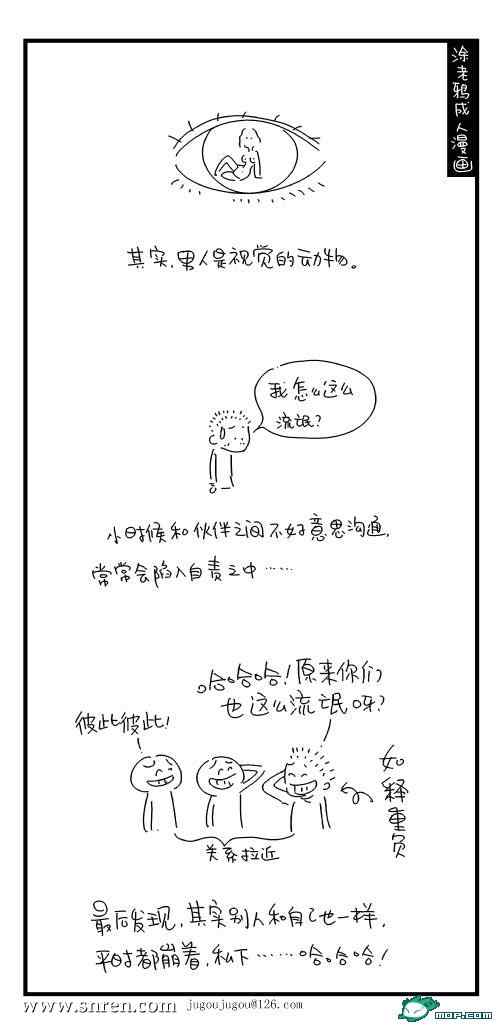 涂老鸦成人漫画
其实,男人是视觉的动物。
我怎么这么
流氓?
小时候和伙伴之间不好意思沟通,
常常会陷入自责之中……
哈哈哈!原来你们
也这么流氓呀?
彼此彼此!
如释重负
关系拉近
最后发现,其实别人和自己也一样,
平时都崩着,私下……哈哈哈!
www.snren.com jugoujugou@126.com
MOP.COM